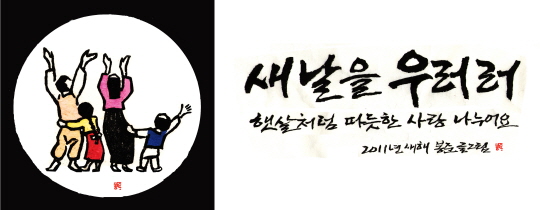 새날을 우러러
햇살처럼 따듯한 사랑 나누어요
2011년 새해 봉준 글그림